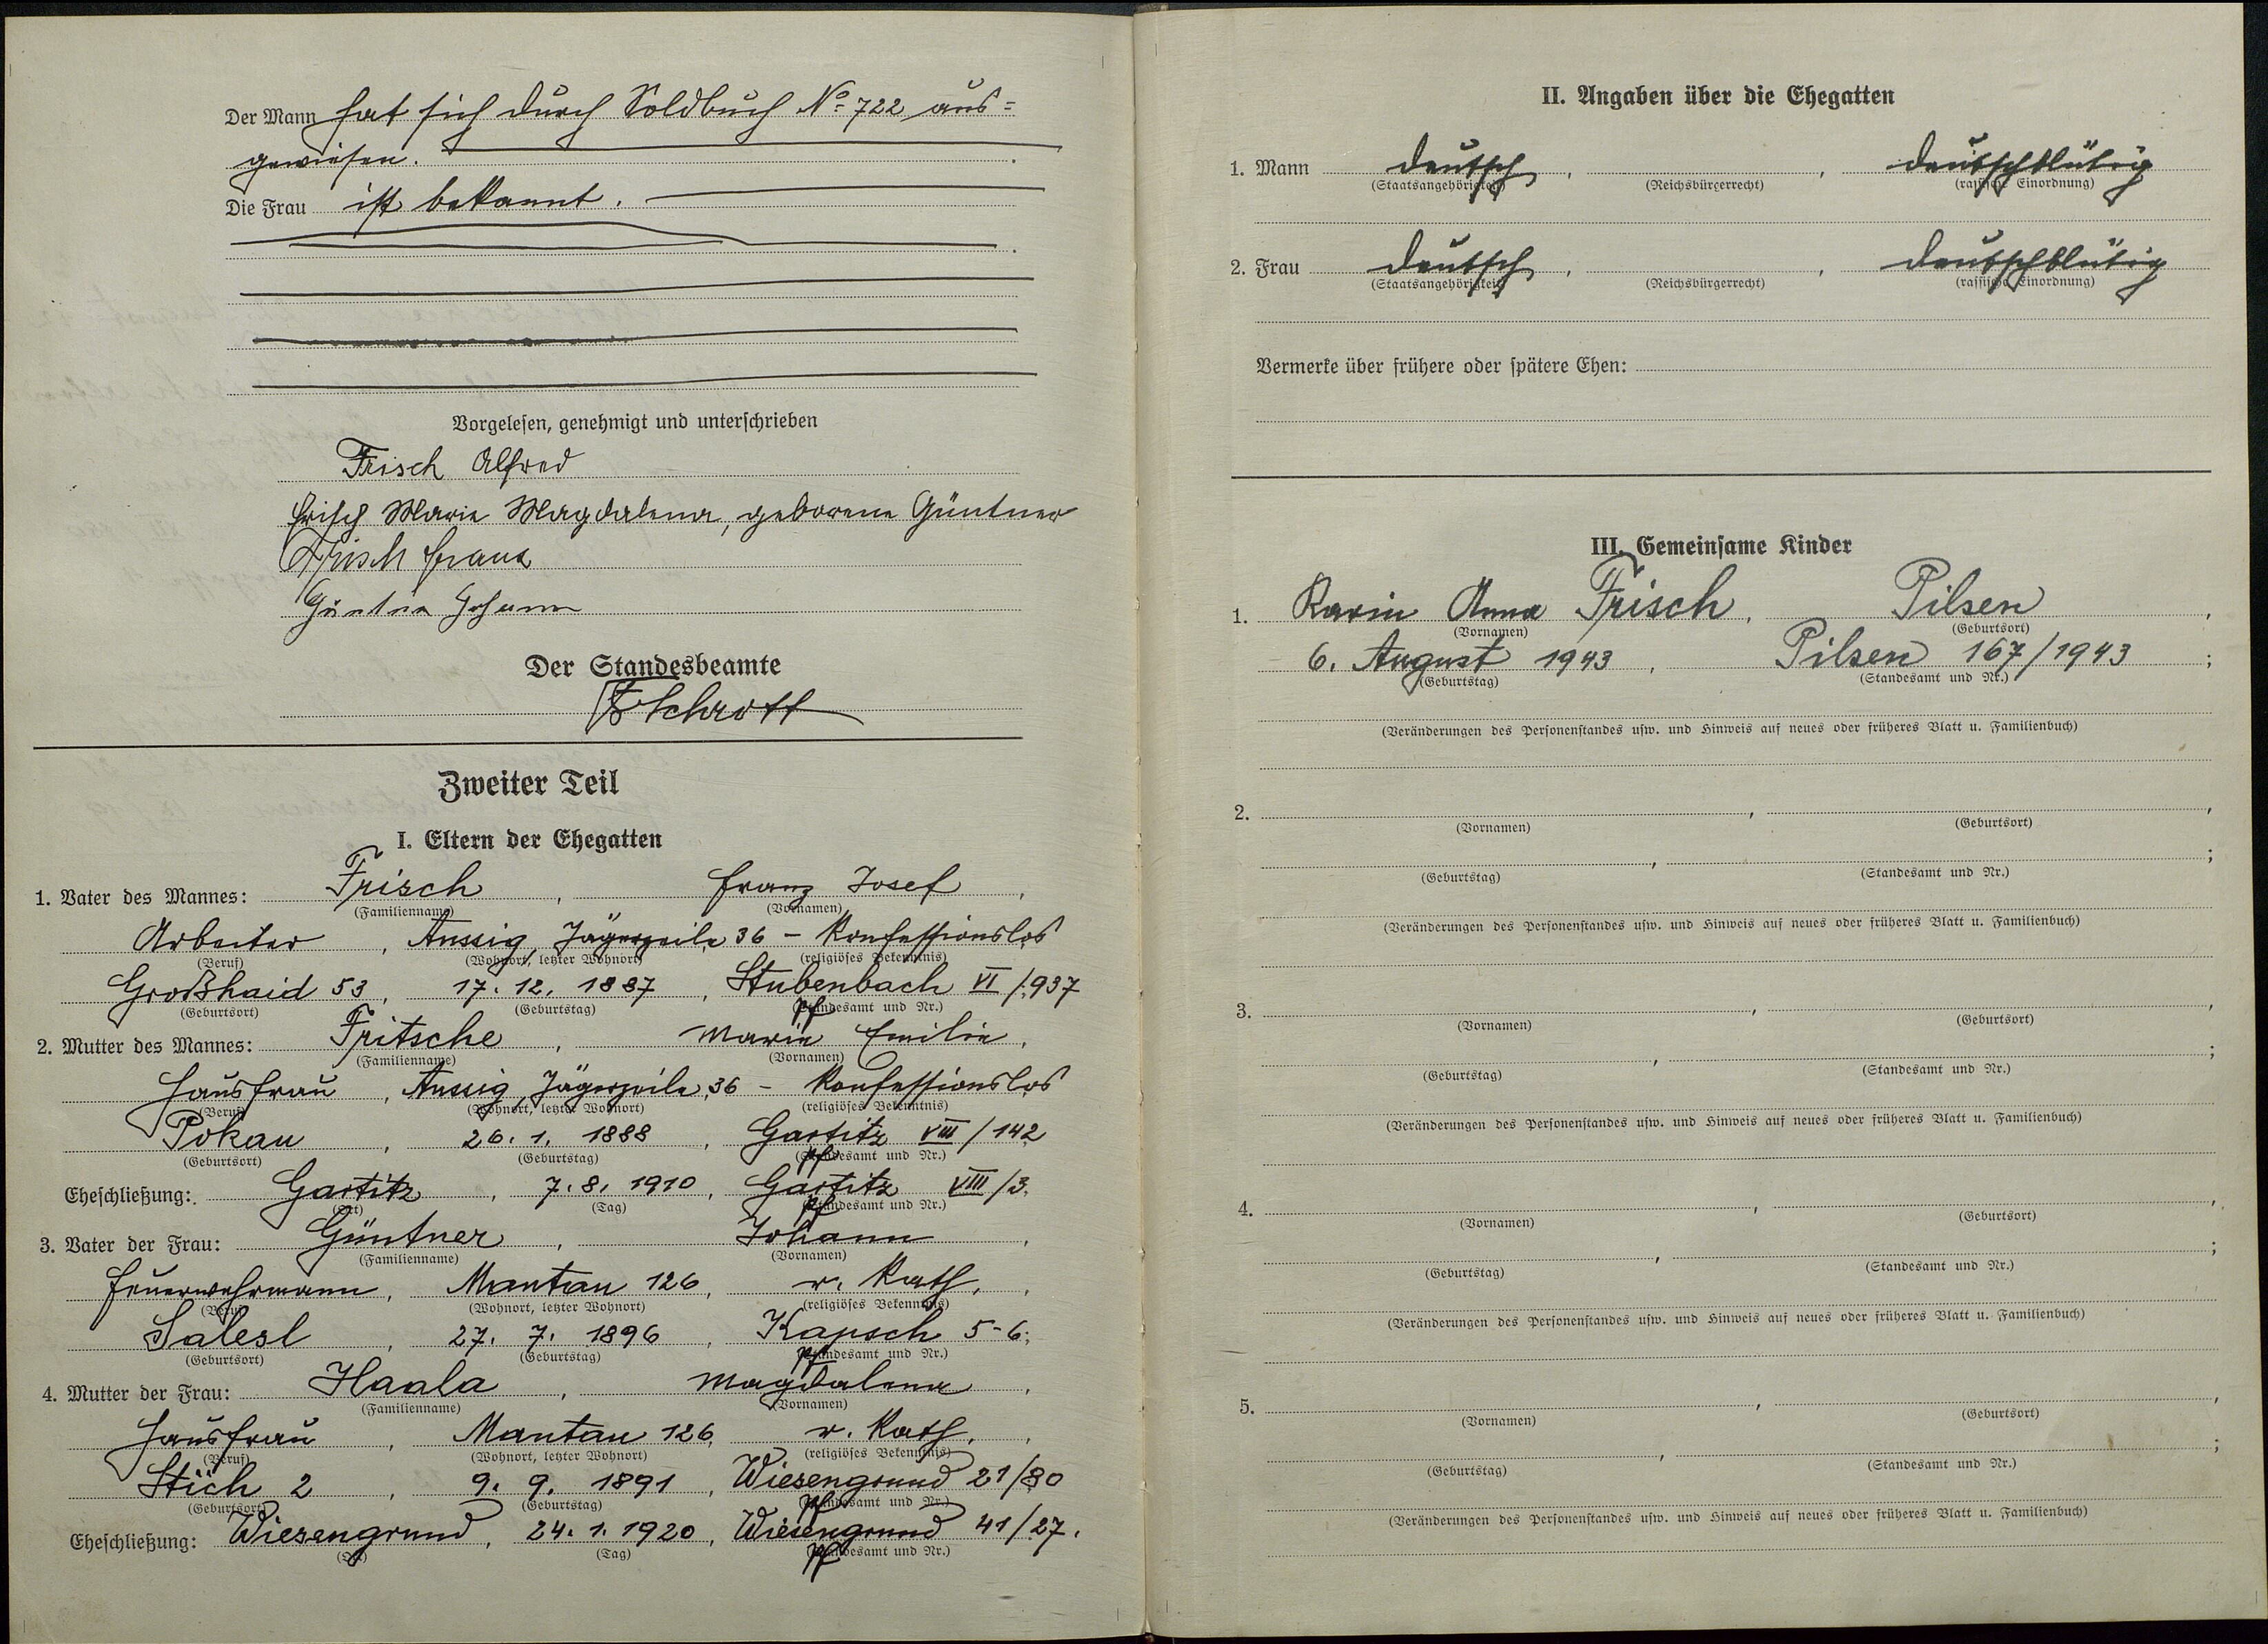 Der Mann hat sich durch Soldbuch No 722 aus=
gewiesen.
Die Frau ist bekannt.
Vorgelesen, genehmigt und unterschrieben
Frisch Alfred
Frisch Marie Magdalena, geborene Güntner
Frisch Franz
Güntner Johann
Der Standesbeamte
Schrott
Zweiter Teil
I. Eltern der Ehegatten
1. Vater des Mannes: Frisch, Franz Josef,
(Familienname) (Vornamen)
Arbeiter, Aussig, Jägerzeile 36 - konfessionslos
(Beruf) (Wohnort, letzter Wohnort) (religiöses Bekenntnis)
Großhaid 53, 17. 12. 1887, Stubenbach VI/937
(Geburtsort) (Geburtstag) (Standesamt und Nr.)
2. Mutter des Mannes: Fritsche, Marie Emilie,
(Familienname) (Vornamen)
Hausfrau, Aussig, Jägerzeile 36 - konfessionslos
(Beruf) (Wohnort, letzter Wohnort) (religiöses Bekenntnis)
Pokau, 26. 1. 1888, Gartitz VIII/142
(Geburtsort) (Geburtstag) (Standesamt und Nr.)
Eheschließung: Gartitz, 7. 8. 1910, Gartitz VIII/3.
(Ort) (Tag) (Standesamt und Nr.)
3. Vater der Frau: Güntner, Johann,
(Familienname) (Vornamen)
Feuerwehrmann, Mantau 126, r. kath.,
(Beruf) (Wohnort, letzter Wohnort) (religiöses Bekenntnis)
Salesl, 27. 7. 1896, Kapsch 5-6;
(Geburtsort) (Geburtstag) (Standesamt und Nr.)
4. Mutter der Frau: Haala, Magdalena,
(Familienname) (Vornamen)
Hausfrau, Mantau 126, r. kath.,
(Beruf) (Wohnort, letzter Wohnort) (religiöses Bekenntnis)
Stich 2, 9. 9. 1891, Wiesengrund 21/80
(Geburtsort) (Geburtstag) (Standesamt und Nr.)
Eheschließung: Wiesengrund, 24. 1. 1920, Wiesengrund 41/27.
(Ort) (Tag) (Standesamt und Nr.)
II. Angaben über die Ehegatten
1. Mann deutsch, , deutschblütig
(Staatsangehörigkeit) (Reichsbürgerrecht) (rassische Einordnung)
2. Frau deutsch, , deutschblütig
(Staatsangehörigkeit) (Reichsbürgerrecht) (rassische Einordnung)
Vermerke über frühere oder spätere Ehen:
III. Gemeinsame Kinder
1. Karin Anna Frisch, Pilsen,
(Vornamen) (Geburtsort)
6. August 1943, Pilsen 167/1943;
(Geburtstag) (Standesamt und Nr.)
(Veränderungen des Personenstandes usw. und Hinweis auf neues oder früheres Blatt u. Familienbuch)
2. , ,
(Vornamen) (Geburtsort)
, ;
(Geburtstag) (Standesamt und Nr.)
(Veränderungen des Personenstandes usw. und Hinweis auf neues oder früheres Blatt u. Familienbuch)
3. , ,
(Vornamen) (Geburtsort)
, ;
(Geburtstag) (Standesamt und Nr.)
(Veränderungen des Personenstandes usw. und Hinweis auf neues oder früheres Blatt u. Familienbuch)
4. , ,
(Vornamen) (Geburtsort)
, ;
(Geburtstag) (Standesamt und Nr.)
(Veränderungen des Personenstandes usw. und Hinweis auf neues oder früheres Blatt u. Familienbuch)
5. , ,
(Vornamen) (Geburtsort)
, ;
(Geburtstag) (Standesamt und Nr.)
(Veränderungen des Personenstandes usw. und Hinweis auf neues oder früheres Blatt u. Familienbuch)